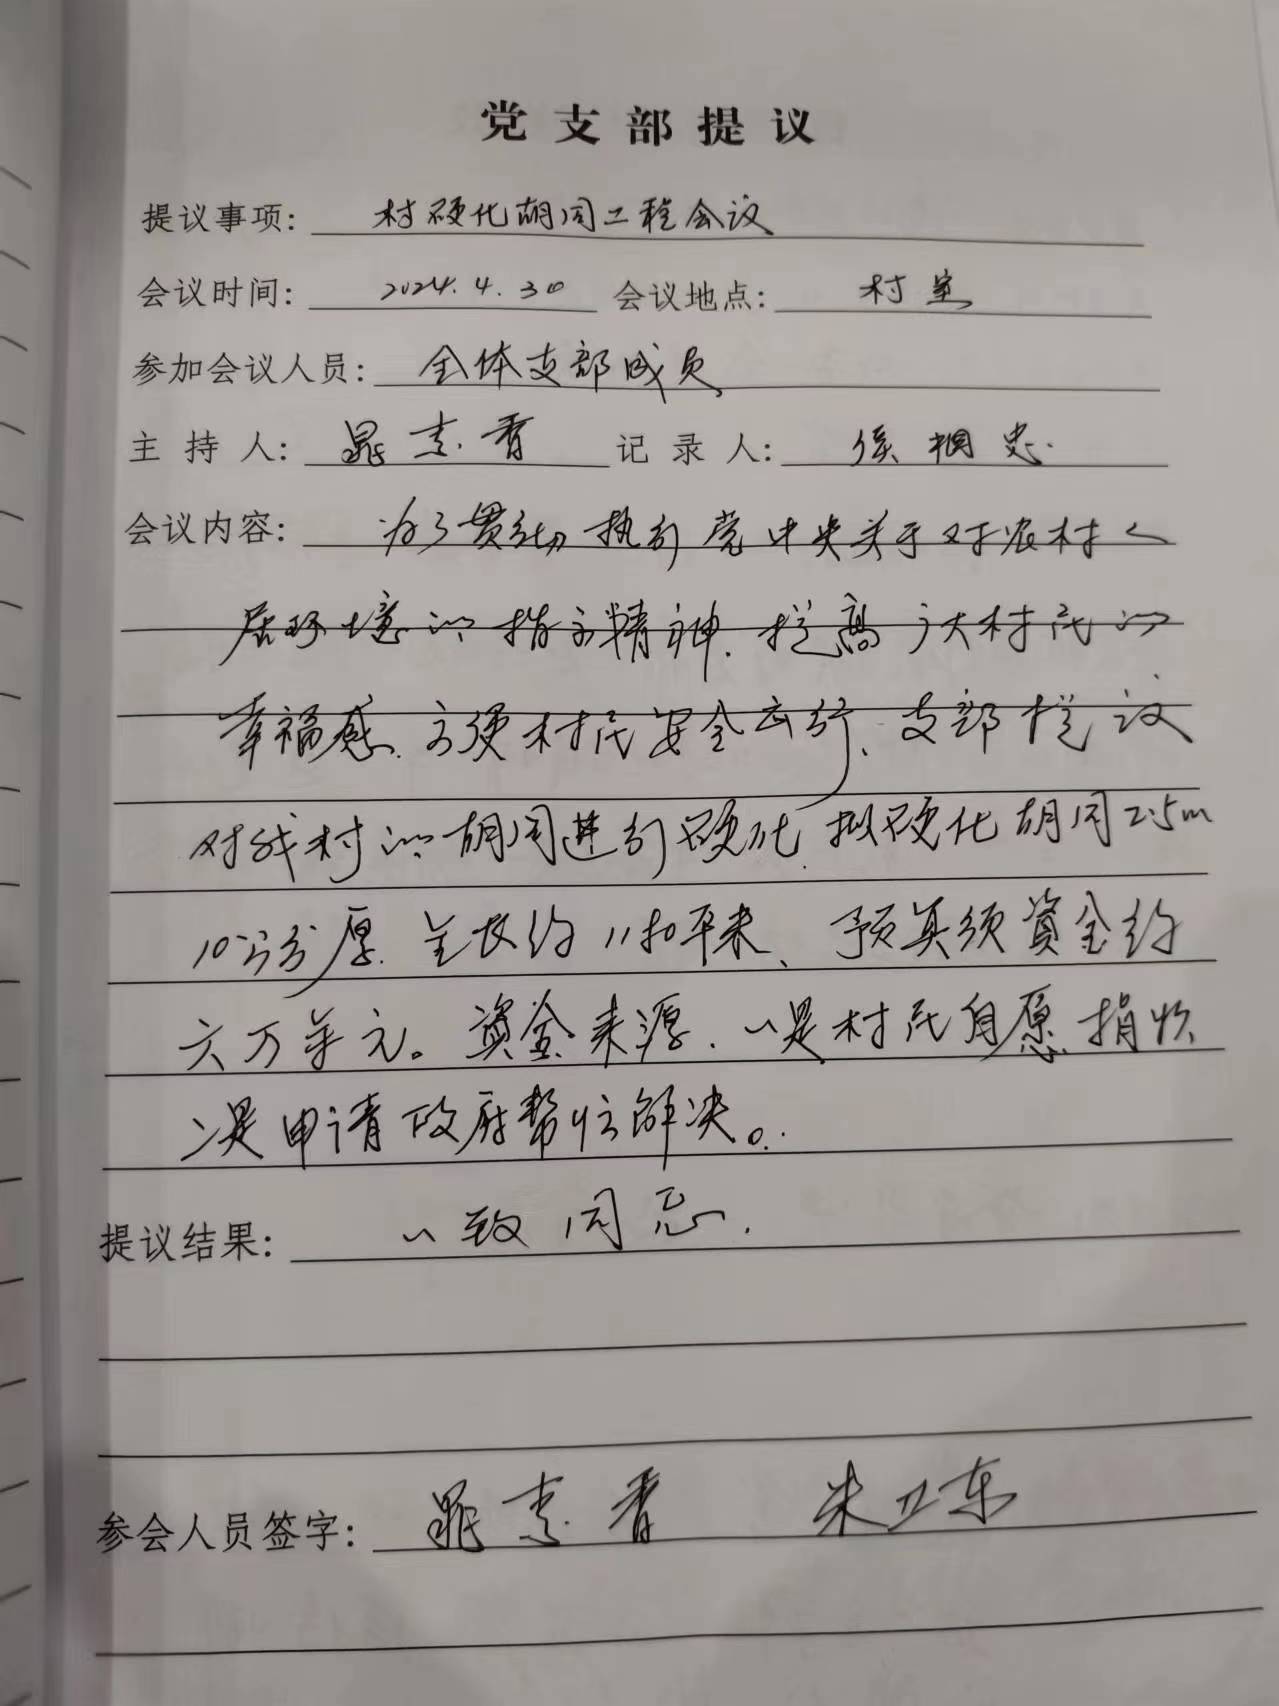 党支部提议
提议事项: 村硬化胡同工程会议
会议时间: 2024.4.30 会议地点: 村室
参加会议人员: 全体支部成员
主持人: 晁素香 记录人: 侯桐忠
会议内容: 为了贯彻执行党中央关于对农村人
居环境的指示精神.提高广大村民的
幸福感.方便村民安全出行、支部提议
对我村的胡同进行硬化.拟硬化胡同2.5m
10公分厚.全长约 平米、预算须资金约
六万余元。资金来源.一是村民自愿捐收
二是申请政府帮忙解决。
提议结果: 一致同意.
参会人员签字: 晁素香 朱卫东